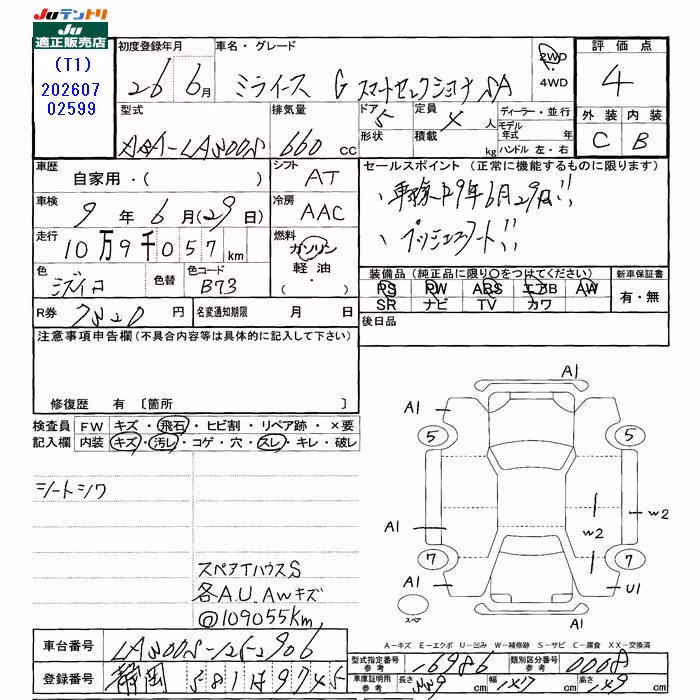 JUテントリ
JU
適正販売店
(T1)
202607
02599
初度登録年月 車名・グレード 2WD 4WD 評価点
26 6月 ミライース G スマートセレクション SA 4
型式 排気量 ドア 5 定員 4人 ディーラー・並行 外装 内装
660cc 形状 積載 kg モデル年式 年 C B
ハンドル 左・右
車歴 自家用・( ) シフト AT セールスポイント (正常に機能するものに限ります)
車検 9年6月(29日) 冷房 AAC 車検R9年6月29日!!
走行 10万9千057km 燃料 ガソリン 軽油・( ) プッシュスタート!!
色 ミズイロ 色替 色コード B73 装備品 (純正品に限り○をつけてください) 新車保証書
PS PW ABS エアB AW 有・無
SR ナビ TV カワ
R券 円 名変通知期限 月 日 後日品
注意事項申告欄(不具合内容等は具体的に記入して下さい)
修復歴 有 〔箇所 〕
検査員 FW キズ・飛石・ヒビ割・リペア跡・×要
記入欄 内装 キズ・汚レ・コゲ・穴・スレ・キレ・破レ
シートシワ
スペアタイハウスS
各A.U.Awキズ
@109055km
A1
A1 A1
5 5
A1 W2 W2
7 7
A1 U1
スペア A1
A-キズ E-エクボ U-凹み W-補修跡 S-サビ C-腐食 XX-交換済
車台番号 型式指定番号 参考 16986 類別区分番号 参考 0008
登録番号 静岡 車庫証明用 参考 長さ cm 幅 147cm 高さ cm